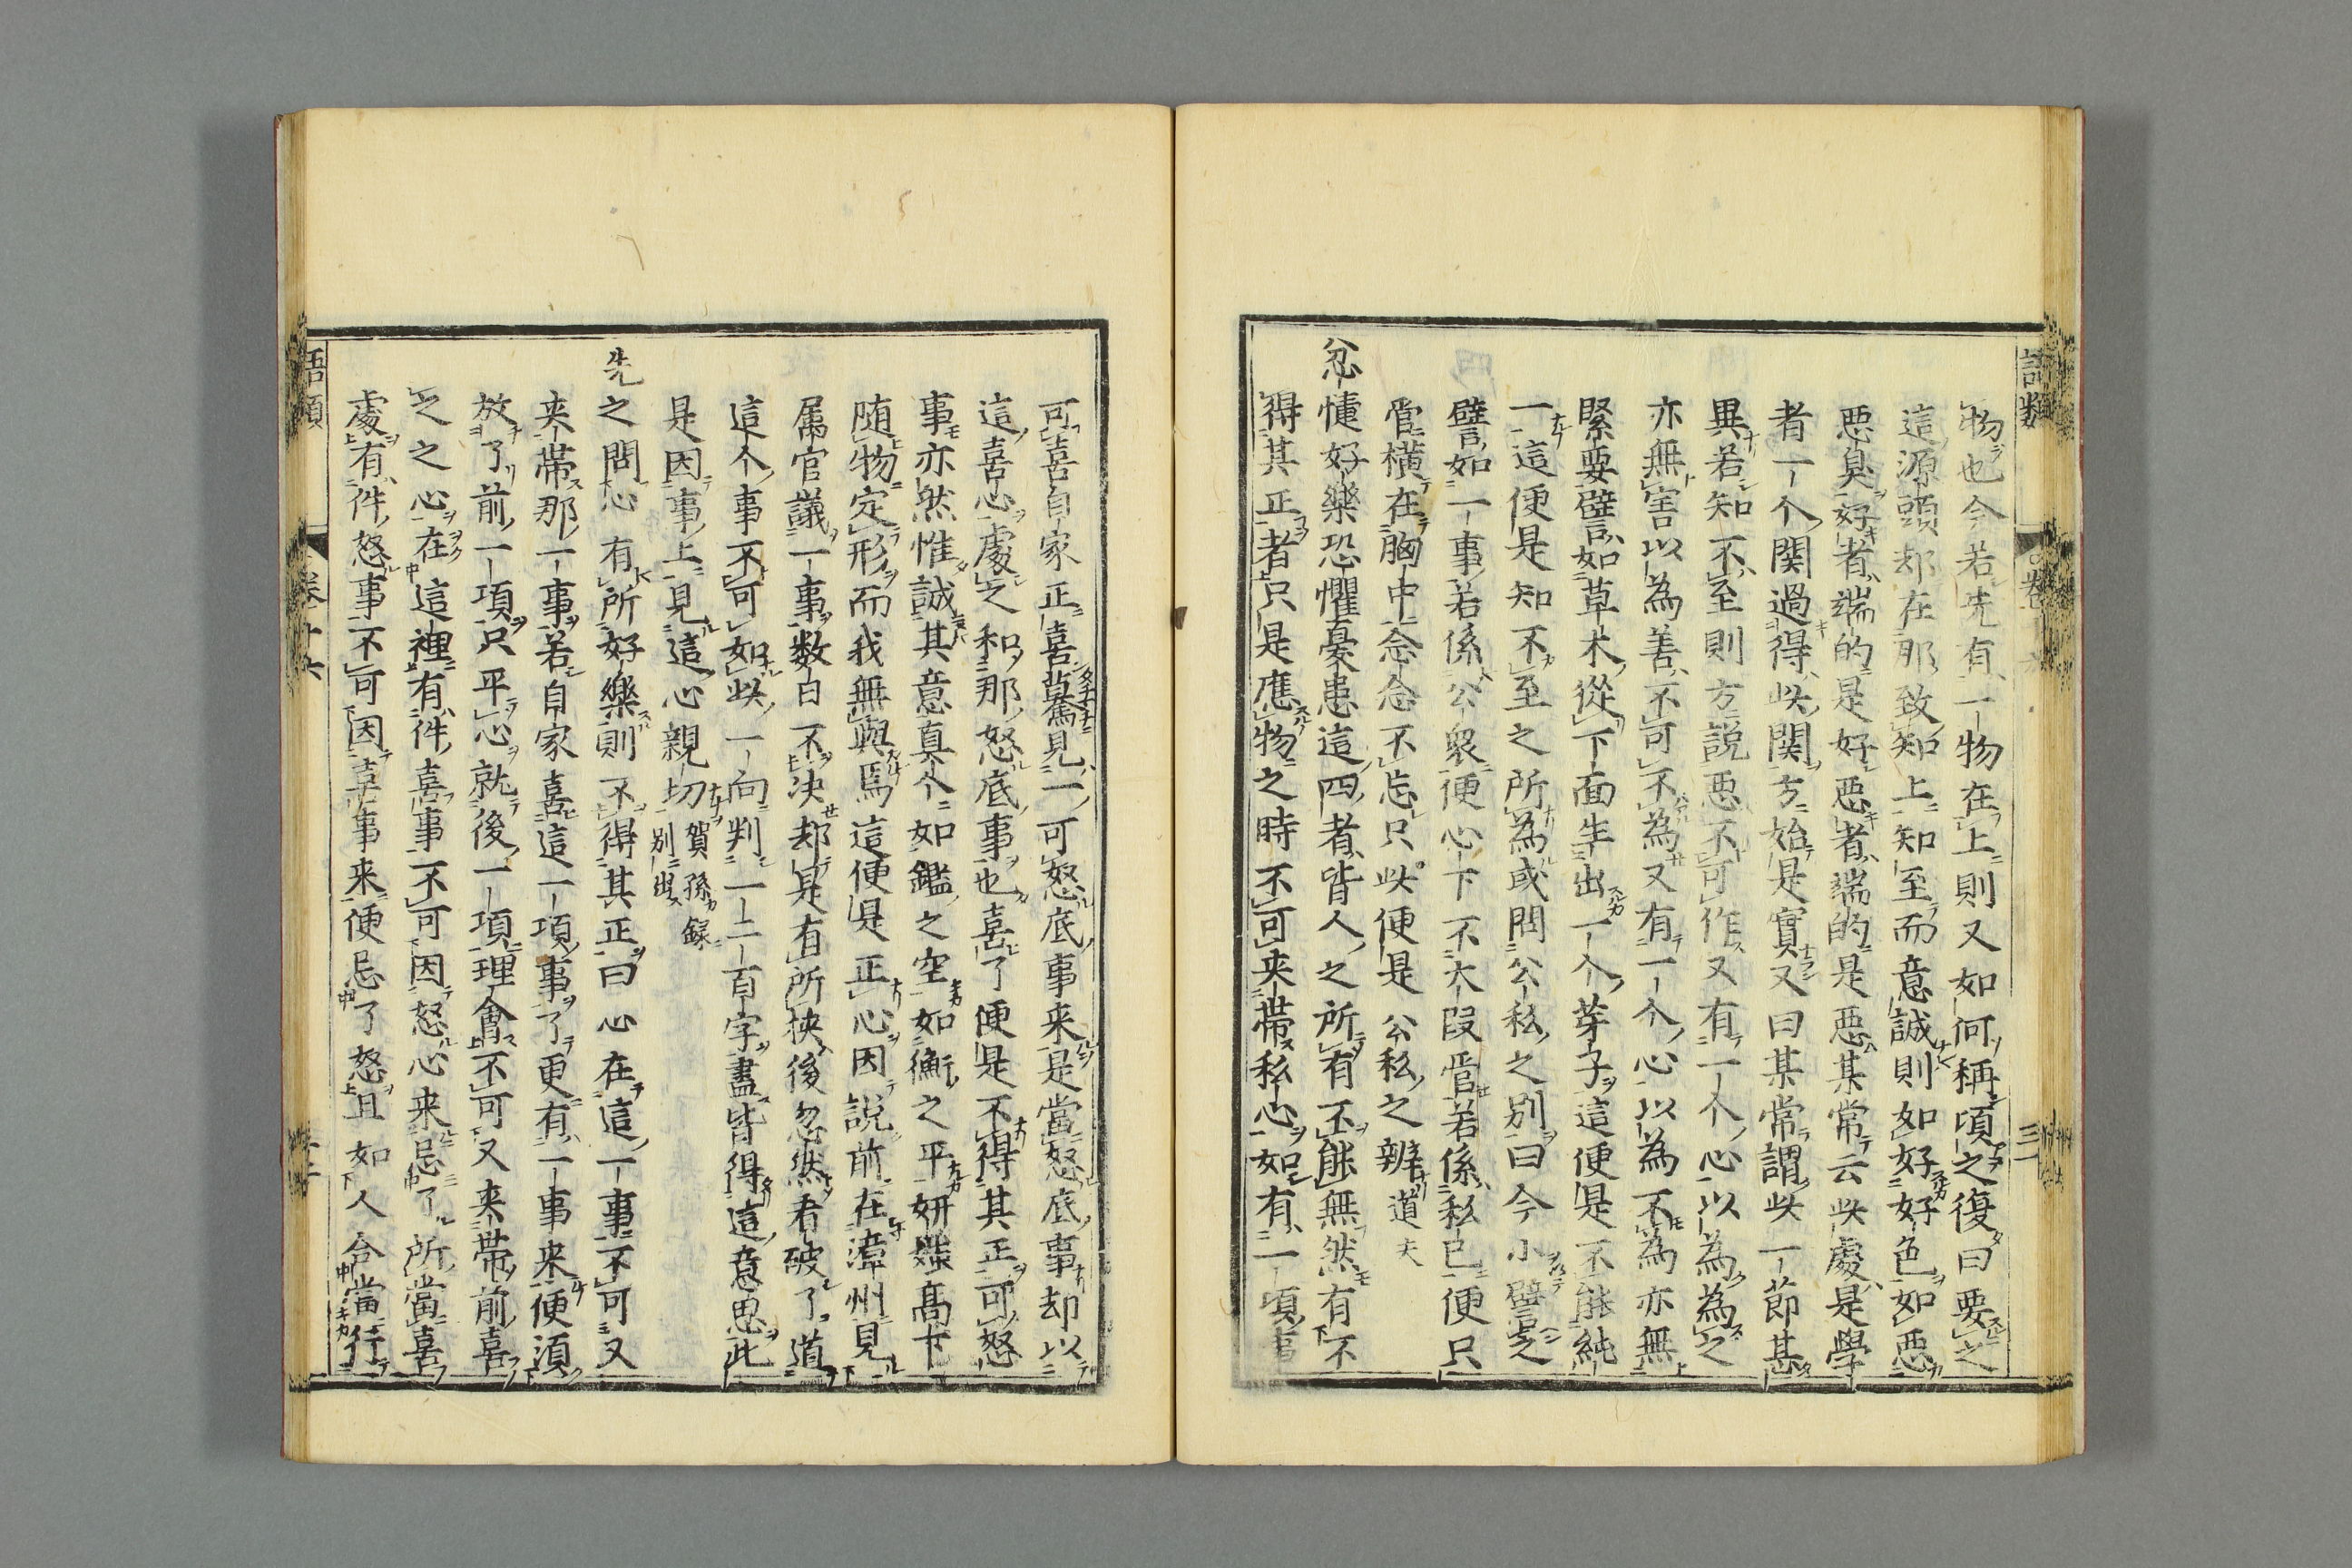 物也今若先有一物在上則又如何稱頃之復曰要之
這源頭却在那致知上知至而意誠則如好好色如惡
惡臭好者端的是好惡者端的是惡某常云此處是學
者一个関過得此関方始是實又曰某常謂此一節甚
異若知不至則方説惡不可作又有一个心以為為之
亦無害以為善不可不為又有一个心以為不為亦無
緊要譬如草木從下面生出一个芽子這便是不能純
一這便是知不至之所為或問公私之別曰今小譬之
譬如一事若係公衆便心下不大段管若係私己便只
管橫在胸中念念不忘只此便是公私之辨道夫
忿懥好樂恐懼憂患這四者皆人之所有不能無然有不
得其正者只是應物之時不可夹帯私心如有一項事
可喜自家正喜驀見一可怒底事来是當怒底事却以
這喜心處之和那怒底事也喜了便是不得其正可怒
事亦然惟誠其意真个如鑑之空如衡之平妍媸髙下
随物定形而我無與焉這便是正心因説前在漳州見
属官議一事数日不决却是有所挟後忽然看破了道
這个事不可如此一向判一二百字盡皆得這意思此
是因事上見這心親切賀孫録別出
先之問心有所好樂則不得其正曰心在這一事不可又
夹帯那一事若自家喜這一項事了更有一事来便須
放了前一項只平心就後一項理會不可又夹帯前喜
之之心在這裡有件喜事不可因怒心来忌了所當喜
處有件怒事不可因喜事来便忌了怒且如人合當行